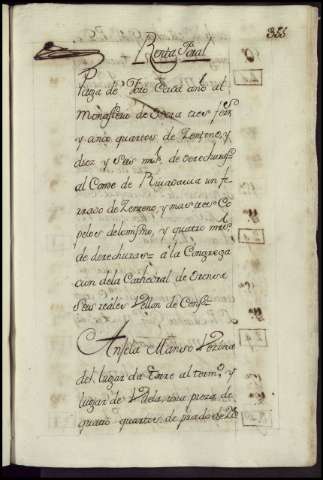 355
Renta Foral
Paga de foro Cada año al
Monasterio de tres
y cinco quartos de Zenteno, y
diez y Seis mrs. de derechuras=
al Conde de Rivadavia un fe-
rrado de Zenteno, y mas tres Co-
pelos delo mismo, y quatro mrs.
de derechuras= á la Congrega
cion dela Cathedral de Orense
Seis reales Vellon de
Anjela Manso Vezina
del lugar da Torre al termo. y
lugar de una pieza de
quatro quartos de prado de